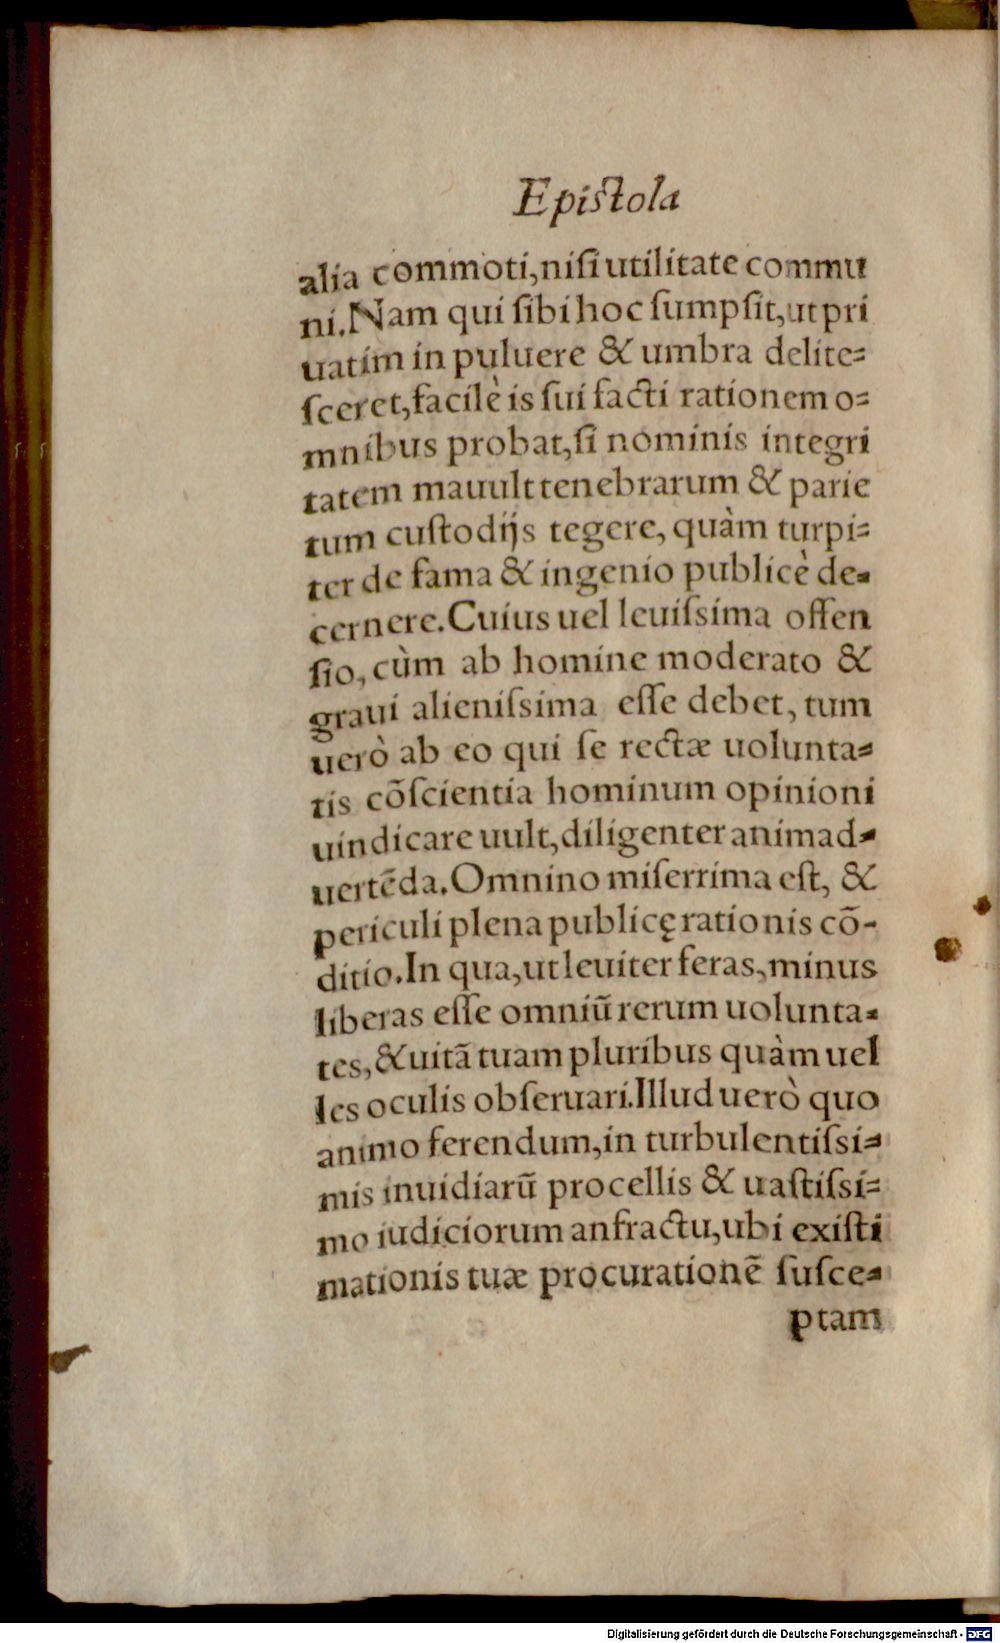 Epiſtola
alia commoti,niſi utilitate commu
ni.Nam qui ſibi hoc ſumpſit,ut pri
uatim in puluere & umbra delite=
ſceret,facilè is ſui facti rationem o=
mnibus probat,ſi nominis integri
tatem mauult tenebrarum & parie
tum cuſtodijs tegere, quàm turpi=
ter de fama & ingenio publicè de=
cernere.Cuius uel leuiſsima offen
ſio, cùm ab homine moderato &
graui alieniſsima eſſe debet, tum
uerò ab eo qui ſe rectæ uolunta=
tis cõſcientia hominum opinioni
uindicare uult,diligenter animad=
uertẽda.Omnino miſerrima eſt, &
periculi plena publicę rationis cõ-
ditio.In qua,ut leuiter feras,minus
liberas eſſe omniũ rerum uolunta=
tes,& uitã tuam pluribus quàm uel
les oculis obſeruari.Illud uerò quo
animo ferendum,in turbulentiſsi=
mis inuidiarũ procellis & uaſtiſsi=
mo iudiciorum anfractu,ubi exiſti
mationis tuæ procurationẽ ſuſce=
ptam
Digitalisierung gefördert durch die Deutsche Forschungsgemeinschaft - DFG